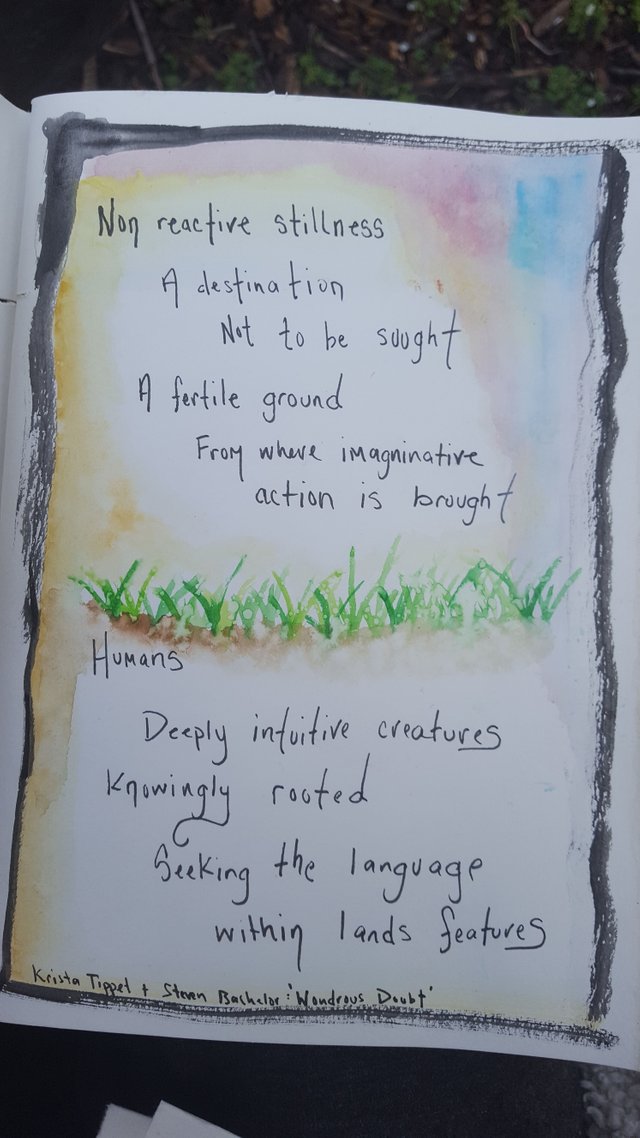 Non reactive stillness
A destination
Not to be sought
A fertile ground
From where imagninative
action is brought
Humans
Deeply intuitive creatures
Knowingly rooted
Seeking the language
within lands features
Krista Tippet + Steven Bachelor: 'Wondrous Doubt'